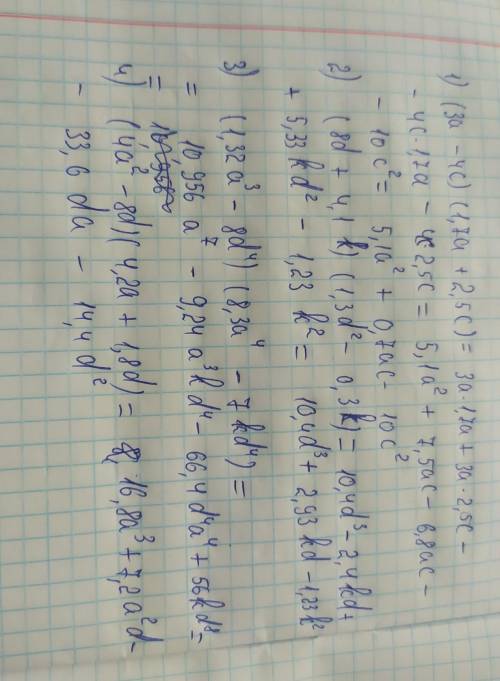 1) (3a - 4c) (1,7a + 2,5c) = 3a·1,7a + 3a·2,5c -
- 4c·1,7a - 4c·2,5c = 5,1a² + 7,5ac - 6,8ac -
- 10c² = 5,1a² + 0,7ac - 10c²
2) (8d + 4,1 k) (1,3d² - 0,3k) = 10,4d³ - 2,4kd +
+ 5,33 kd² - 1,23 k² = 10,4d³ + 2,93 kd - 1,23k²
3) (1,32a³ - 8d⁴) (8,3a⁴ - 7kd⁴) =
= 10 956 a⁷ - 9,24a³kd⁴ - 66,4d⁴a⁴ + 56kd⁸ =
=
4) (4a² - 8d) (4,2a + 1,8d) = 16,8a³ + 7,2a²d -
- 33,6 da - 14,4d²